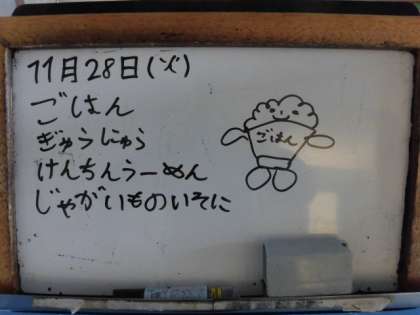 11月28日(火)
ごはん
ぎゅうじゅう
けんちんうーめん
じゃがいものいそに
ごはん